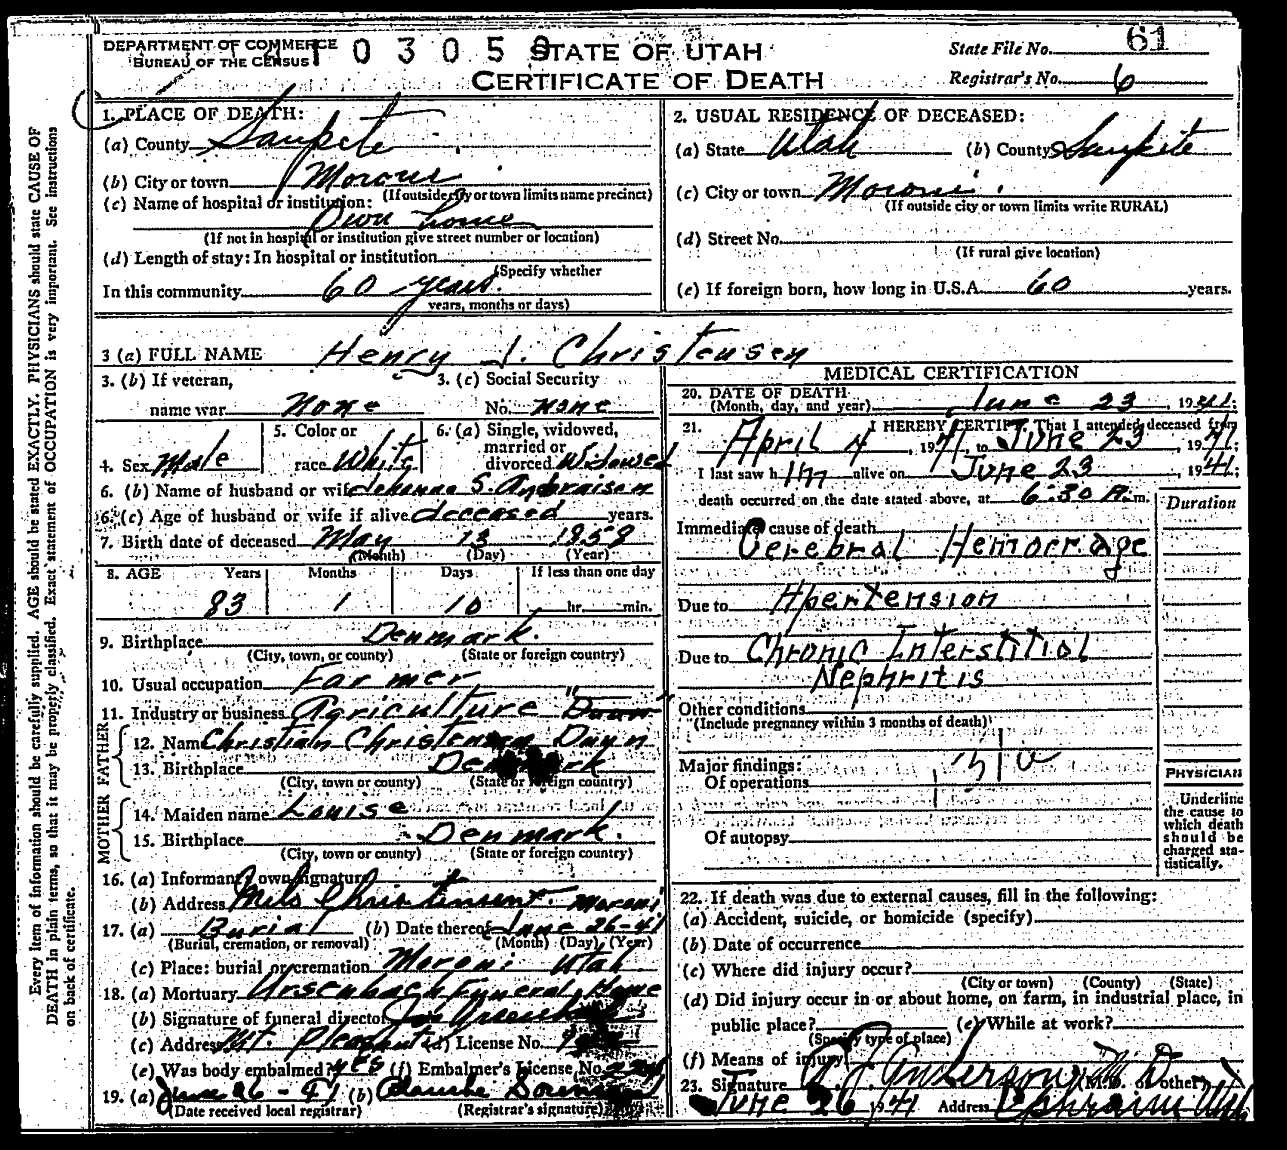 DEPARTMENT OF COMMERCE
BUREAU OF THE CENSUS
103059
STATE OF UTAH
CERTIFICATE OF DEATH
State File No. 61
Registrar's No. 6
1. PLACE OF DEATH:
(a) County Sanpete
(b) City or town Moroni
(If outside city or town limits name precinct)
(c) Name of hospital or institution:
Own home
(If not in hospital or institution give street number or location)
(d) Length of stay: In hospital or institution
(Specify whether
In this community 60 years.
years, months or days)
2. USUAL RESIDENCE OF DECEASED:
(a) State Utah (b) County Sanpete
(c) City or town Moroni
(If outside city or town limits write RURAL)
(d) Street No.
(If rural give location)
(e) If foreign born, how long in U.S.A. 60 years.
3 (a) FULL NAME Henry J. Christensen
3. (b) If veteran,
name war None
3. (c) Social Security
No. none
4. Sex Male
5. Color or
race White
6. (a) Single, widowed,
married or
divorced Widowed
6. (b) Name of husband or wife Johanna S.
6. (c) Age of husband or wife if alive deceased years.
7. Birth date of deceased May 13 1858
(Month) (Day) (Year)
8. AGE Years Months Days If less than one day
83 1 10 hr. min.
9. Birthplace Denmark.
(City, town, or county) (State or foreign country)
10. Usual occupation Farmer
11. Industry or business Agriculture
FATHER
12. Name Christian Christensen Dayn
13. Birthplace Denmark
(City, town or county) (State or foreign country)
MOTHER
14. Maiden name Louise
15. Birthplace Denmark.
(City, town or county) (State or foreign country)
16. (a) Informant's own signature
(b) Address Moroni
17. (a) Burial (b) Date thereof June 26-41
(Burial, cremation, or removal) (Month) (Day) (Year)
(c) Place: burial or cremation Moroni Utah
18. (a) Mortuary Ursenbach Funeral Home
(b) Signature of funeral director
(c) Address Mt. Pleasant (d) License No.
(e) Was body embalmed? yes (f) Embalmer's License No.
19. (a) June 26-41 (b)
(Date received local registrar) (Registrar's signature)
MEDICAL CERTIFICATION
20. DATE OF DEATH
(Month, day, and year) June 23, 1941:
21. I HEREBY CERTIFY, That I attended deceased from
April 4, 1941, to June 23, 1941;
I last saw him alive on June 23 1941;
death occurred on the date stated above, at 6:30 A.m.
Duration
Immediate cause of death
Cerebral Hemorrage
Due to Hpertension
Due to Chronic Interstitial
Nephritis
Other conditions
(Include pregnancy within 3 months of death)
Major findings:
Of operations
Of autopsy
PHYSICIAN
Underline
the cause to
which death
should be
charged sta-
tistically.
22. If death was due to external causes, fill in the following:
(a) Accident, suicide, or homicide (specify)
(b) Date of occurrence
(c) Where did injury occur?
(City or town) (County) (State)
(d) Did injury occur in or about home, on farm, in industrial place, in
public place? (e) While at work?
(Specify type of place)
(f) Means of injury
23. Signature Anderson M.D. (M.D. or other)
June 26 1941 Address Ephraim Utah
Every item of information should be carefully supplied. AGE should be stated EXACTLY. PHYSICIANS should state CAUSE OF
DEATH in plain terms, so that it may be properly classified. Exact statement of OCCUPATION is very important. See instructions
on back of certificate.